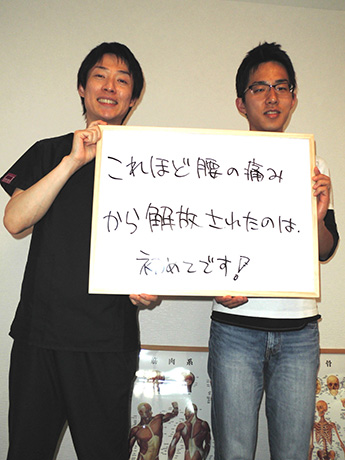 これほど腰の痛み
から解放されたのは.
初めてです!
筋肉系
骨